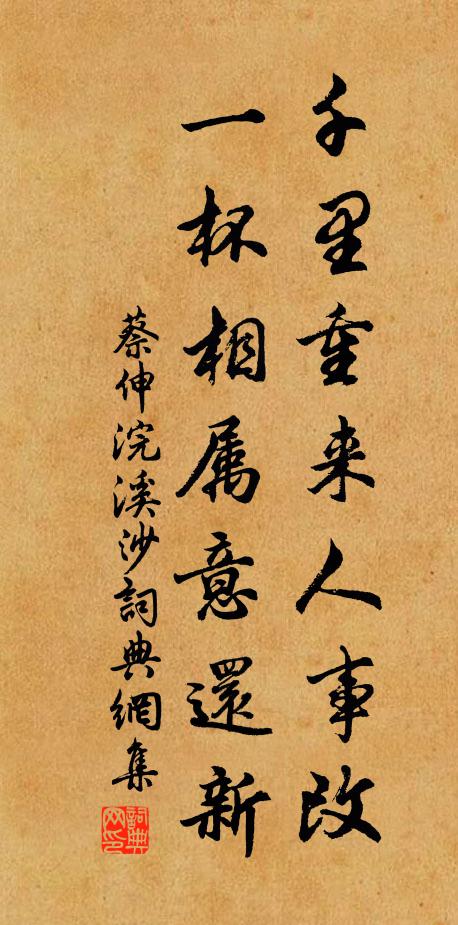 千里重来人事改
一杯相属意還新
蔡伸浣溪沙詞典網集
詞典网印